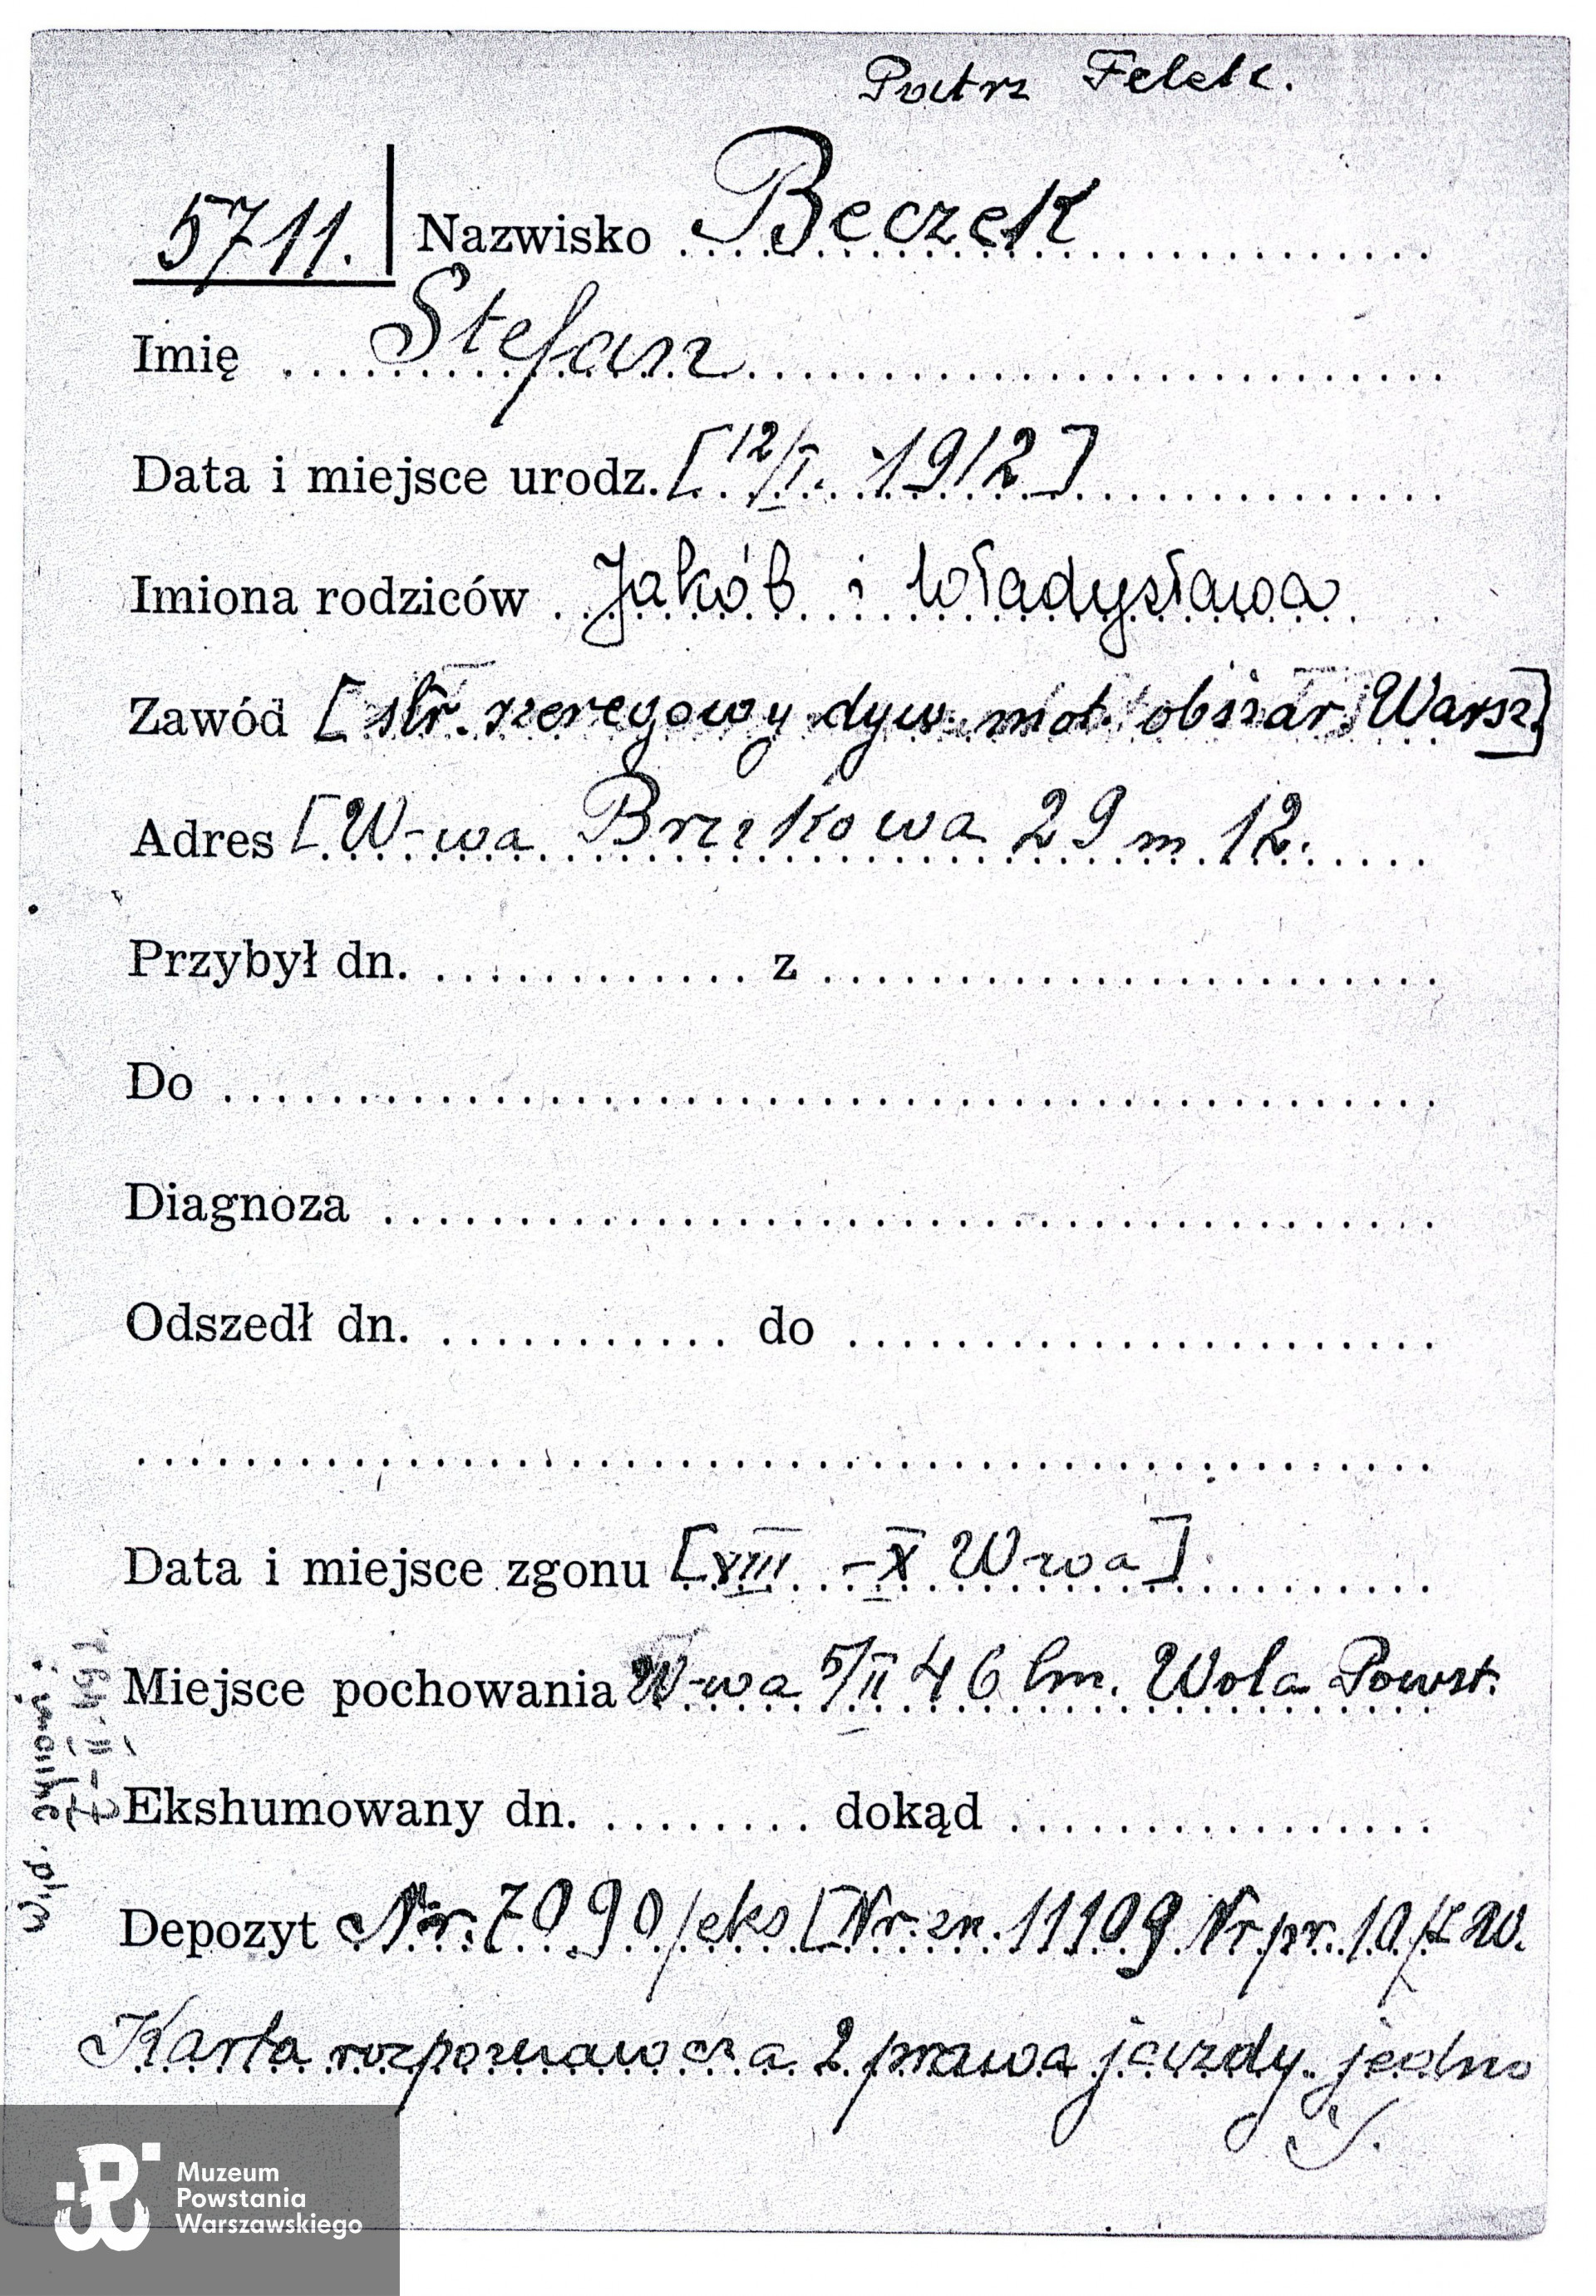 Patrz Felek.
5711. Nazwisko Beczek
Imię Stefan
Data i miejsce urodz. [12/I. 1912]
Imiona rodziców Jakób i Władysława
Zawód [str. szeregowy dyw. mot. obszar. Warsz]
Adres [W-wa 29 m 12.
Przybył dn. z
Do
Diagnoza
Odszedł dn. do
Data i miejsce zgonu [VIII - X W-wa]
Miejsce pochowania W-wa 5/II 46 Cm. Wola Powst.
Ekshumowany dn. dokąd
Depozyt Nr. 7090/eks [Nr. zn. 11109 Nr pr. 10/
Karta rozpoznawcza 2 prawa jazdy. jedno
Wyd. synowi.
Muzeum
Powstania
Warszawskiego